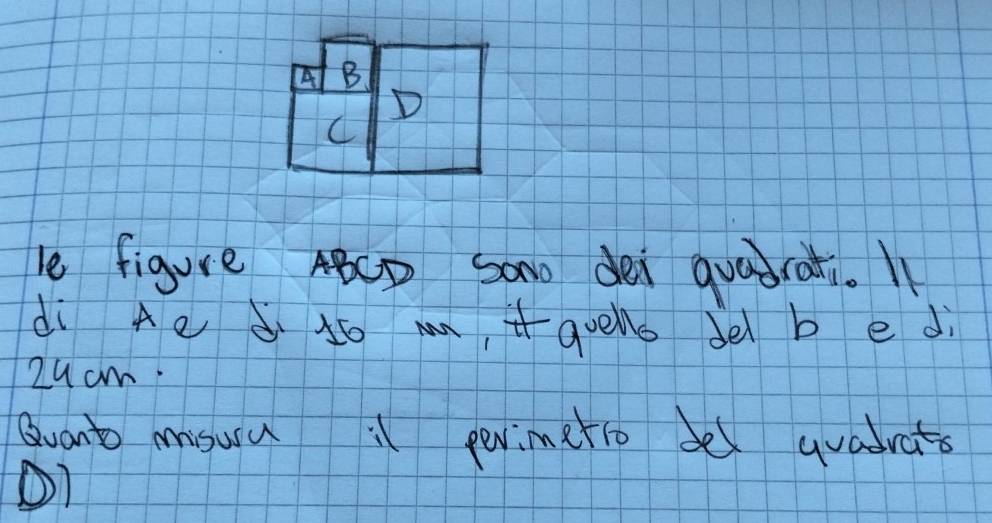 A B
C D
le figure ABCD sono dei quadrati. Il
di A e di 16 cm, quello del b e di
24 cm.
Quanto misura il perimetro del quadrato
D?